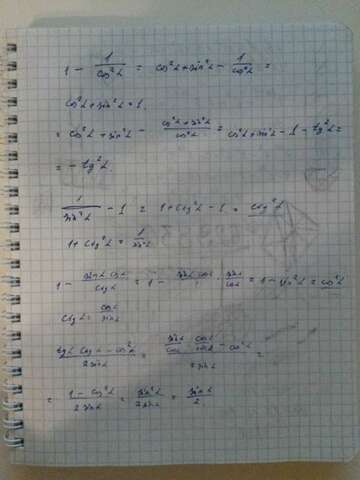 1 - 1/cos²α = cos²α + sin²α - 1/cos²α =
cos²α + sin²α = 1.
= cos²α + sin²α - (cos²α + sin²α)/cos²α = cos²α + sin²α - 1 - tg²α =
= - tg²α.
1/sin²α - 1 = 1 + ctg²α - 1 = ctg²α
1 + ctg²α = 1/sin²α
1 - (sinα cosα)/ctgα = 1 - (sinα cosα)/1 · sinα/cosα = 1 - sin²α = cos²α
ctgα = cosα/sinα
(tgα ctgα - cos²α)/(2 sinα) = (sinα/cosα · cosα/sinα - cos²α)/(2 sinα) =
= (1 - cos²α)/(2 sinα) = sin²α/(2 sinα) = sinα/2.